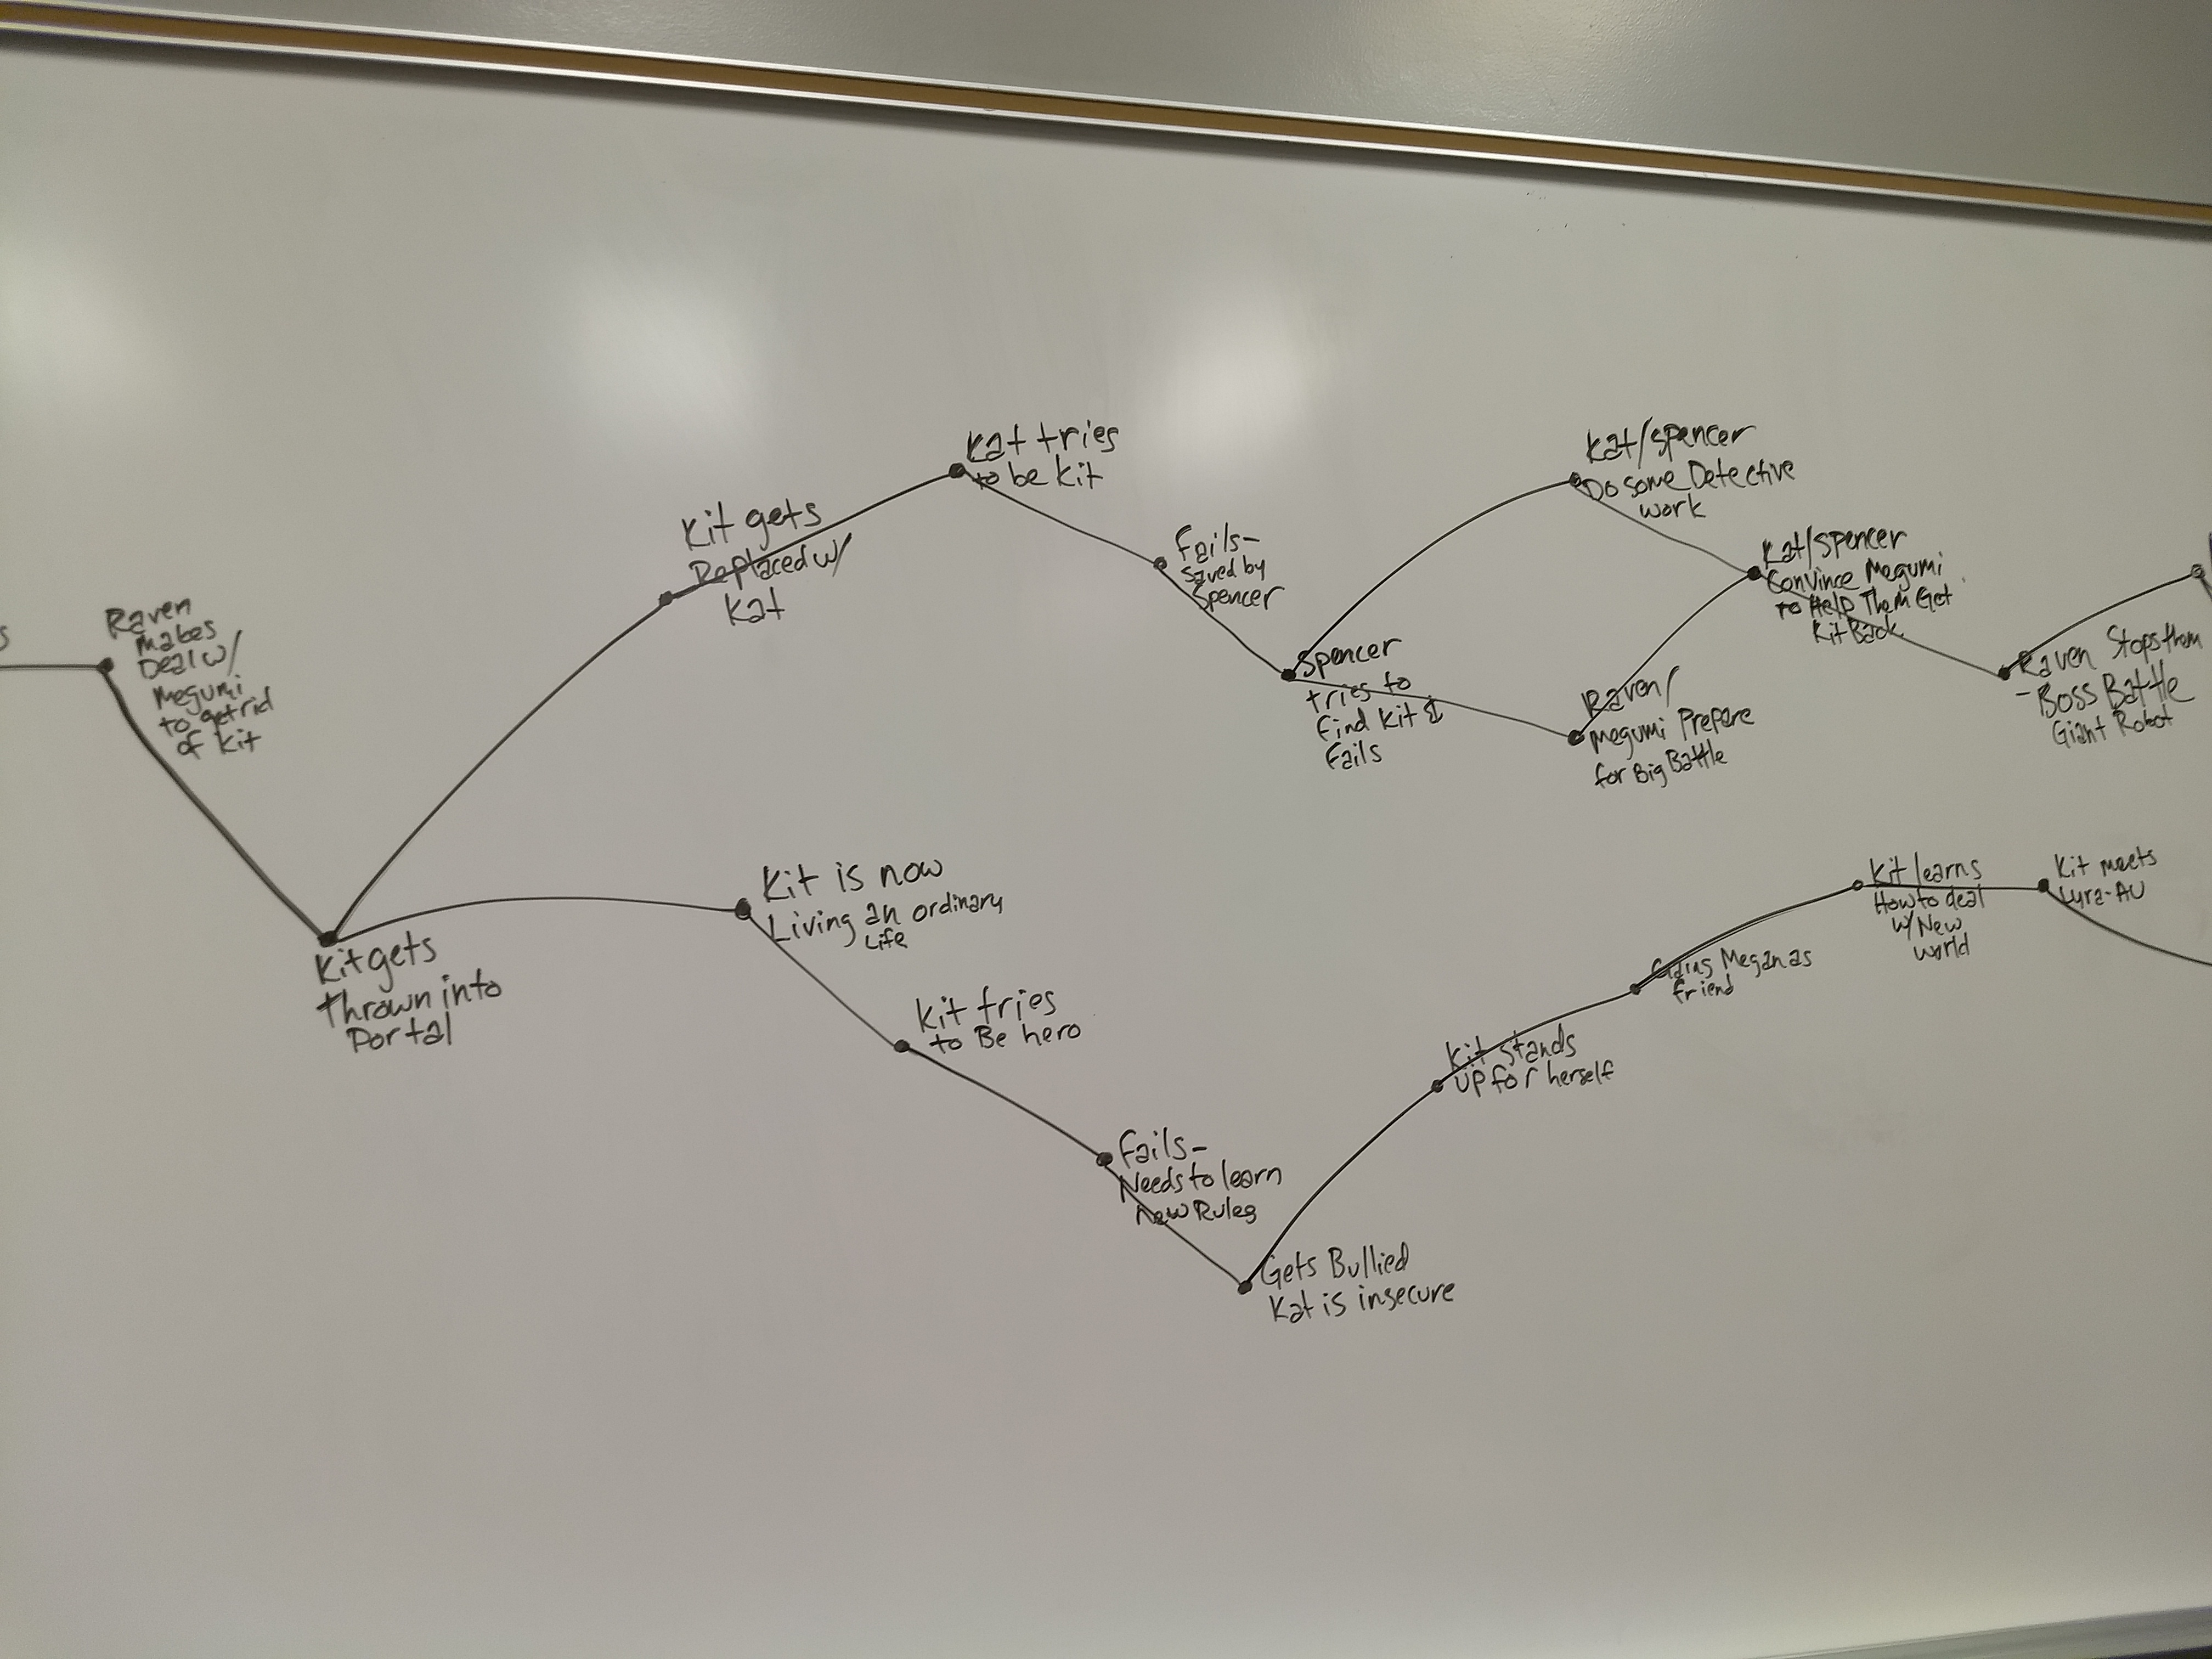 s
Raven
Makes
Deal w/
Megumi
to get rid
of Kit
Kit gets
Thrown into
Portal
Kit gets
Replaced w/
Kat
Kat tries
to be Kit
Fails-
Saved by
Spencer
Spencer
tries to
find Kit &
Fails
Kat/Spencer
Do some Detective
work
Raven/
Megumi Prepare
for Big Battle
Kat/Spencer
Convince Megumi
to Help Them Get
Kit Back
Raven Stops them
-Boss Battle
Giant Robot
Kit is now
Living an ordinary
Life
Kit tries
to Be hero
Fails-
Needs to learn
New Rules
Gets Bullied
Kat is insecure
Kit stands
up for herself
Gains Megan as
friend
Kit learns
How to deal
w/ New
world
Kit meets
Lyra-AU